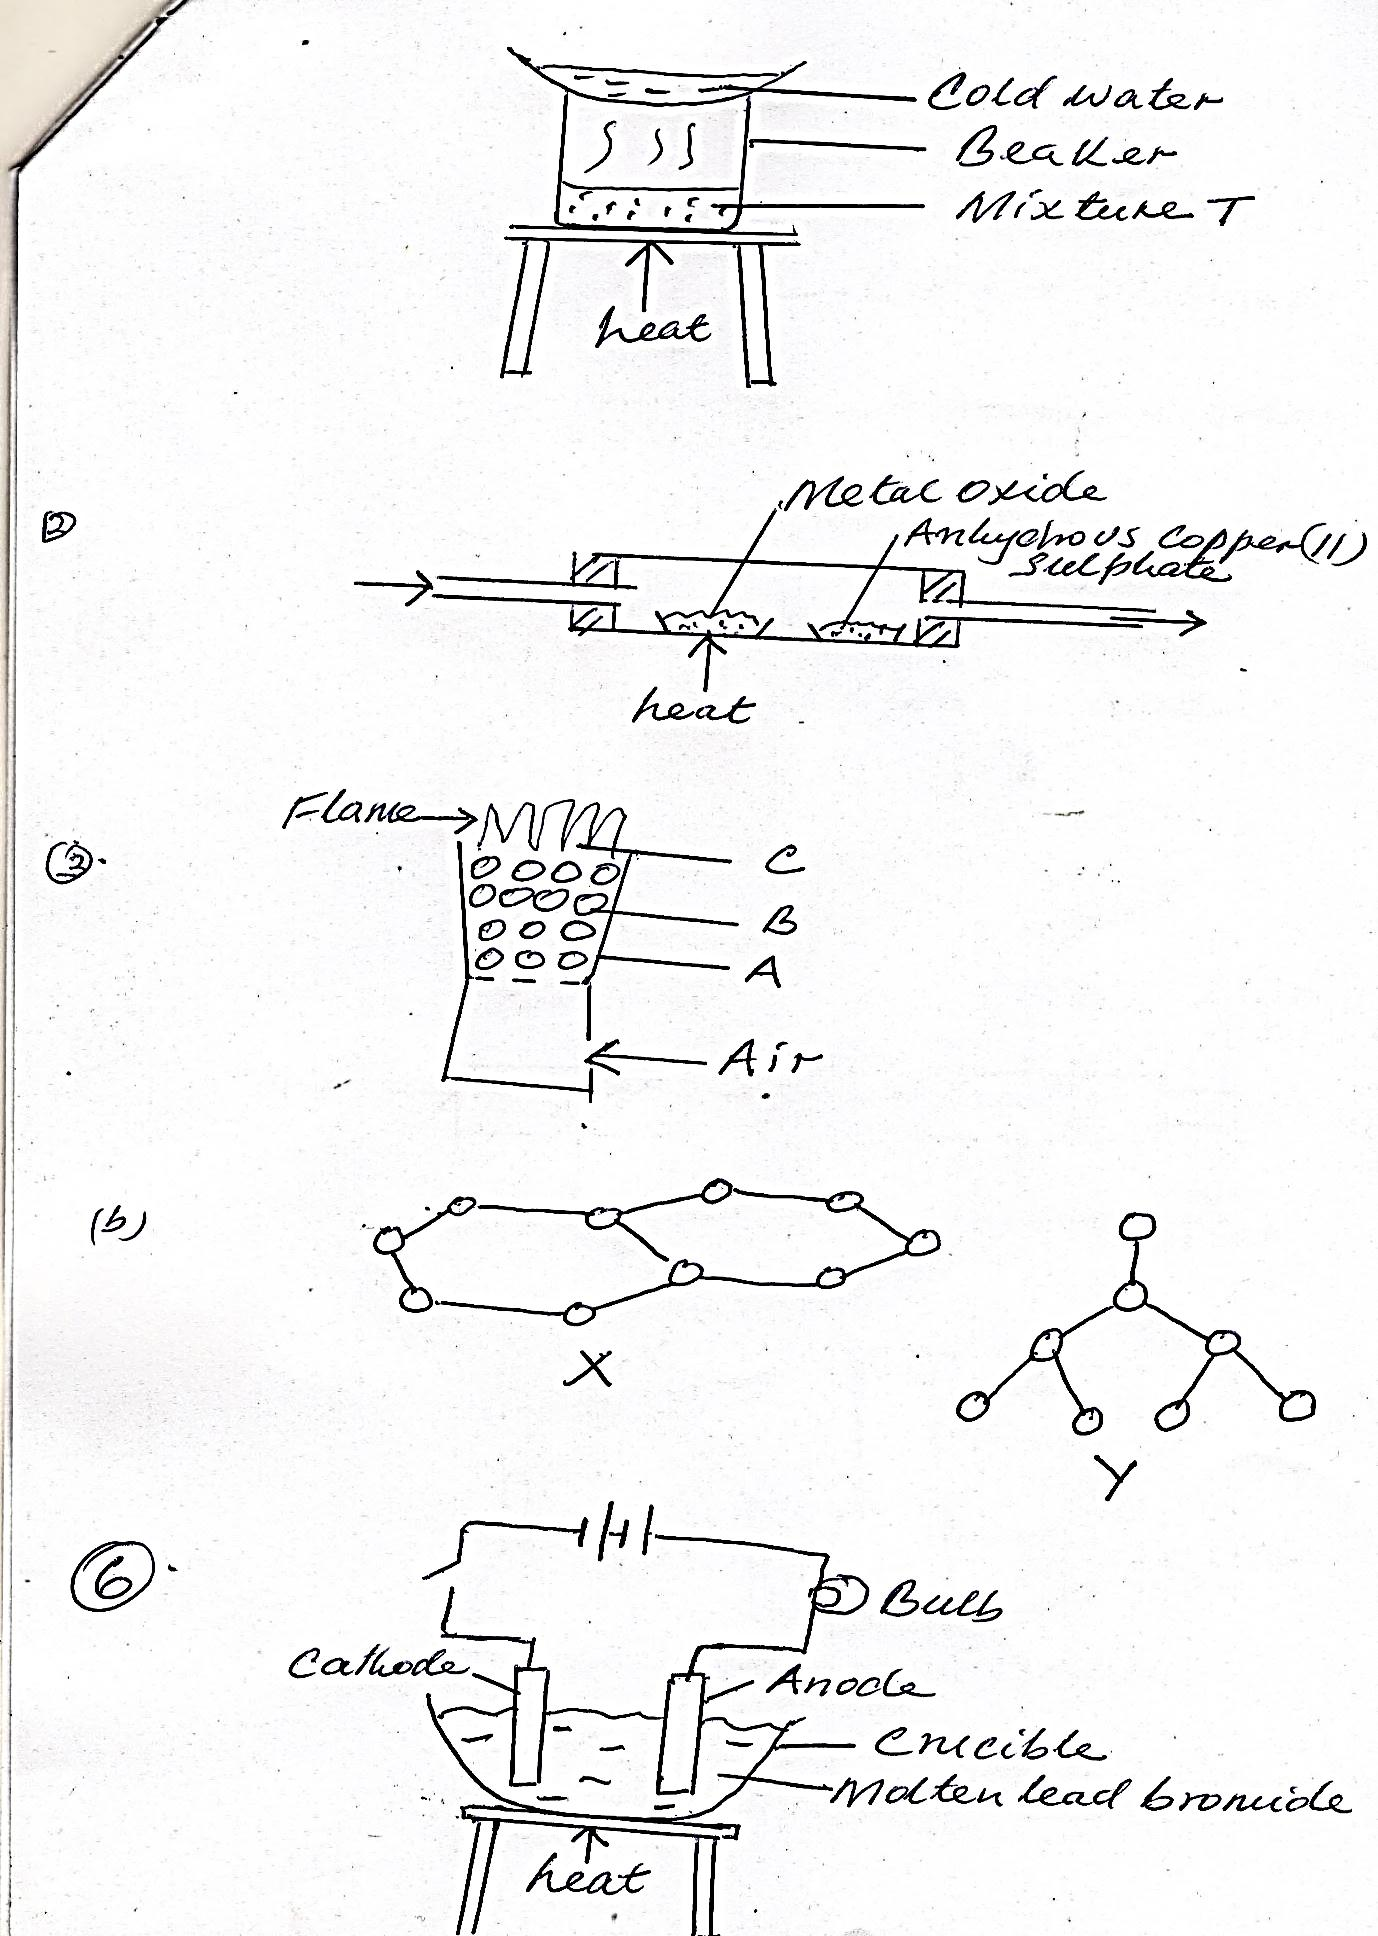 Cold water
Beaker
Mixture T
heat
②
Metal oxide
Anhydrous Copper(II)
Sulphate
heat
Flame
③.
C
B
A
Air
(b)
X
Y
⑥.
Bulb
Cathode
Anode
Crucible
Molten lead bromide
heat